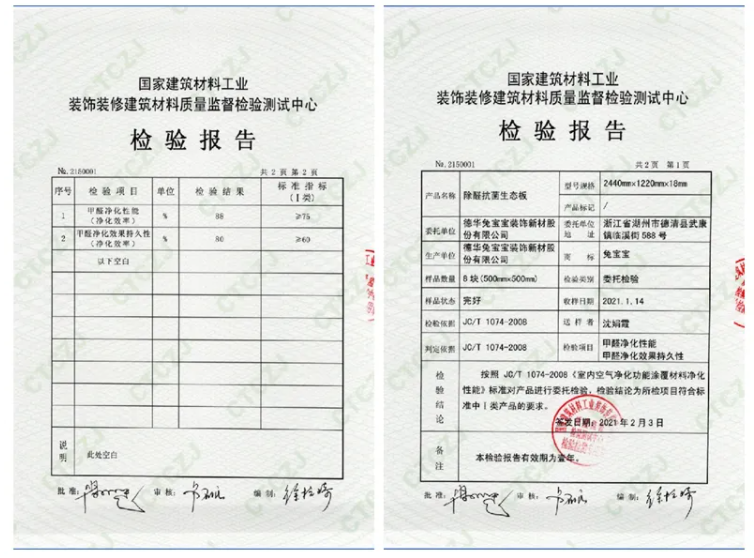 国家建筑材料工业
装饰装修建筑材料质量监督检验测试中心
检验报告
No.2150001 共2页 第2页
序号 检验项目 单位 检验结果 标准指标
（Ⅰ类）
1 甲醛净化性能
（净化效率） % 88 ≥75
2 甲醛净化效果持久性
（净化效率） % 80 ≥60
以下空白
说明 此处空白
批准: 审核: 编制:
国家建筑材料工业
装饰装修建筑材料质量监督检验测试中心
检验报告
No.2150001 共2页 第1页
产品名称 除醛抗菌生态板 型号规格 2440mm×1220mm×18mm
产品标记 /
委托单位 德华兔宝宝装饰新材股份有限公司 委托单位地址 浙江省湖州市德清县武康镇临溪街588号
生产单位 德华兔宝宝装饰新材股份有限公司 商标 兔宝宝
样品数量 8块(500mm×500mm) 检验类别 委托检验
样品状态 完好 收样日期 2021.1.14
检验依据 JC/T 1074-2008 送样者 沈娟霞
判定依据 JC/T 1074-2008 检验项目 甲醛净化性能
甲醛净化效果持久性
检验结论 按照 JC/T 1074-2008《室内空气净化功能涂覆材料净化
性能》标准对产品进行委托检验，检验结论为所检项目符合标
准中Ⅰ类产品的要求。
签发日期：2021年2月3日
备注 本检验报告有效期为壹年。
批准: 审核: 编制:
CTCZJ